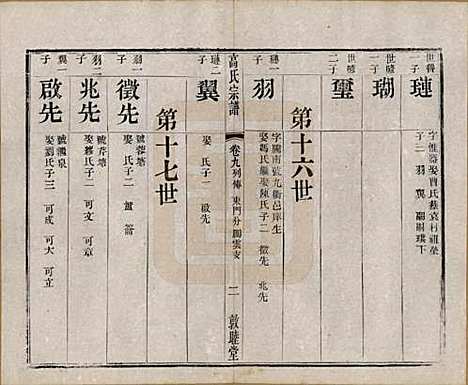 世賢一子
璉
字惟器娶賈氏葬袁村祖塋
子二 羽 翼 嗣瑚璞下
世賢二子
瑚
世賢三子
璽
第十六世
璉一子
羽
字騰南號九衢邑庠生
娶馮氏繼娶陳氏子二 徵先 兆先
高氏宗譜
卷九列傳 東門分 鵬雲支
二
敦睦堂
璉二子
翼
娶 氏子一 啟先
第十七世
羽一子
徵先
號蓉塘
娶 氏子二
羽二子
兆先
號芹塘
娶 氏子二 可文 可章
翼一子
啟先
號 泉
娶劉氏子三 可成 可大 可立